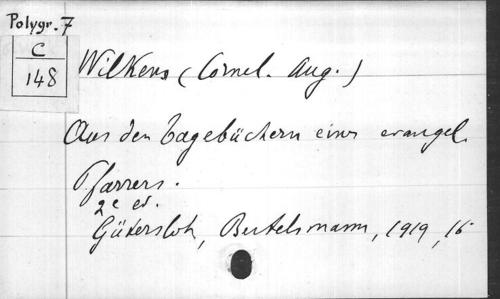 Polygr. 7
C
148
Wilkens (Cornel. Aug.)
Aus den Tagebüchern eines evangel.
Pfarrers.
2e ed.
Gütersloh, Bertelsmann, 1919, 16